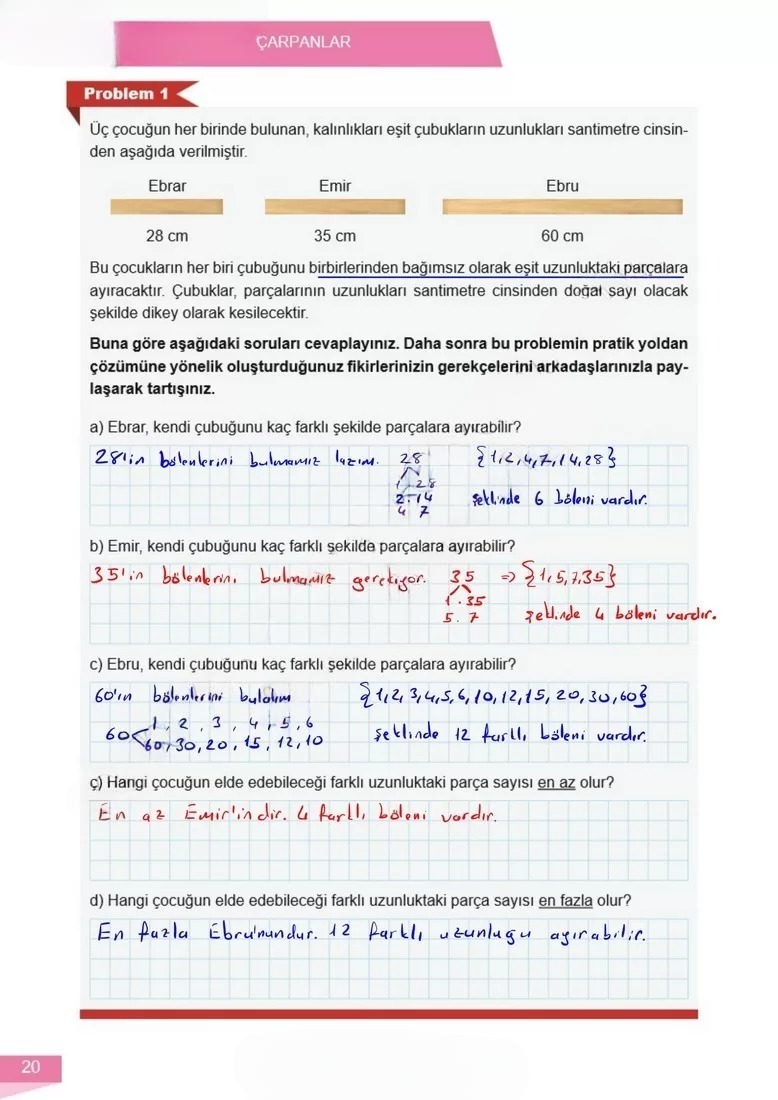 ÇARPANLAR
Problem 1
Üç çocuğun her birinde bulunan, kalınlıkları eşit çubukların uzunlukları santimetre cinsin-
den aşağıda verilmiştir.
Ebrar Emir Ebru
28 cm 35 cm 60 cm
Bu çocukların her biri çubuğunu birbirlerinden bağımsız olarak eşit uzunluktaki parçalara
ayıracaktır. Çubuklar, parçalarının uzunlukları santimetre cinsinden doğal sayı olacak
şekilde dikey olarak kesilecektir.
Buna göre aşağıdaki soruları cevaplayınız. Daha sonra bu problemin pratik yoldan
çözümüne yönelik oluşturduğunuz fikirlerinizin gerekçelerini arkadaşlarınızla pay-
laşarak tartışınız.
a) Ebrar, kendi çubuğunu kaç farklı şekilde parçalara ayırabilir?
28'in bölenlerini bulmamız lazım. 28 {1,2,4,7,14,28}
1.28
2.14 şeklinde 6 böleni vardır.
4 7
b) Emir, kendi çubuğunu kaç farklı şekilde parçalara ayırabilir?
35'in bölenlerini bulmamız gerekiyor. 35 => {1,5,7,35}
1.35
5.7 şeklinde 4 böleni vardır.
c) Ebru, kendi çubuğunu kaç farklı şekilde parçalara ayırabilir?
60'ın bölenlerini bulalım {1,2,3,4,5,6,10,12,15,20,30,60}
1, 2, 3, 4, 5, 6
60 60,30,20,15,12,10 şeklinde 12 farklı böleni vardır.
ç) Hangi çocuğun elde edebileceği farklı uzunluktaki parça sayısı en az olur?
En az Emir'indir. 4 farklı böleni vardır.
d) Hangi çocuğun elde edebileceği farklı uzunluktaki parça sayısı en fazla olur?
En fazla Ebru'nundur. 12 farklı uzunluğu ayırabilir.
20